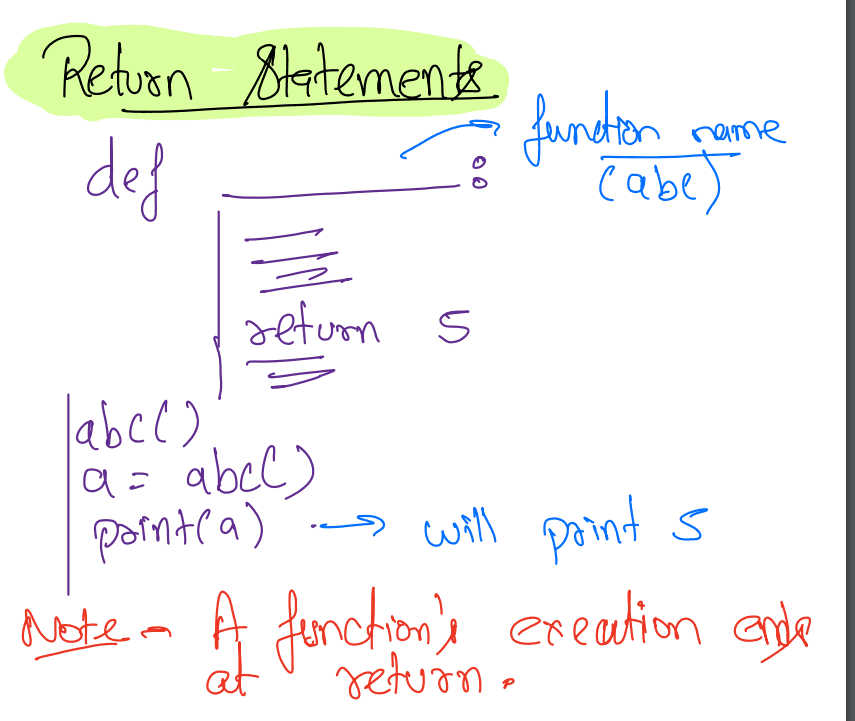 Return Statements
def ________ :
function name
(abc)
return 5
abc()
a = abc()
print(a) → will print 5
Note - A function's execution ends
at return.